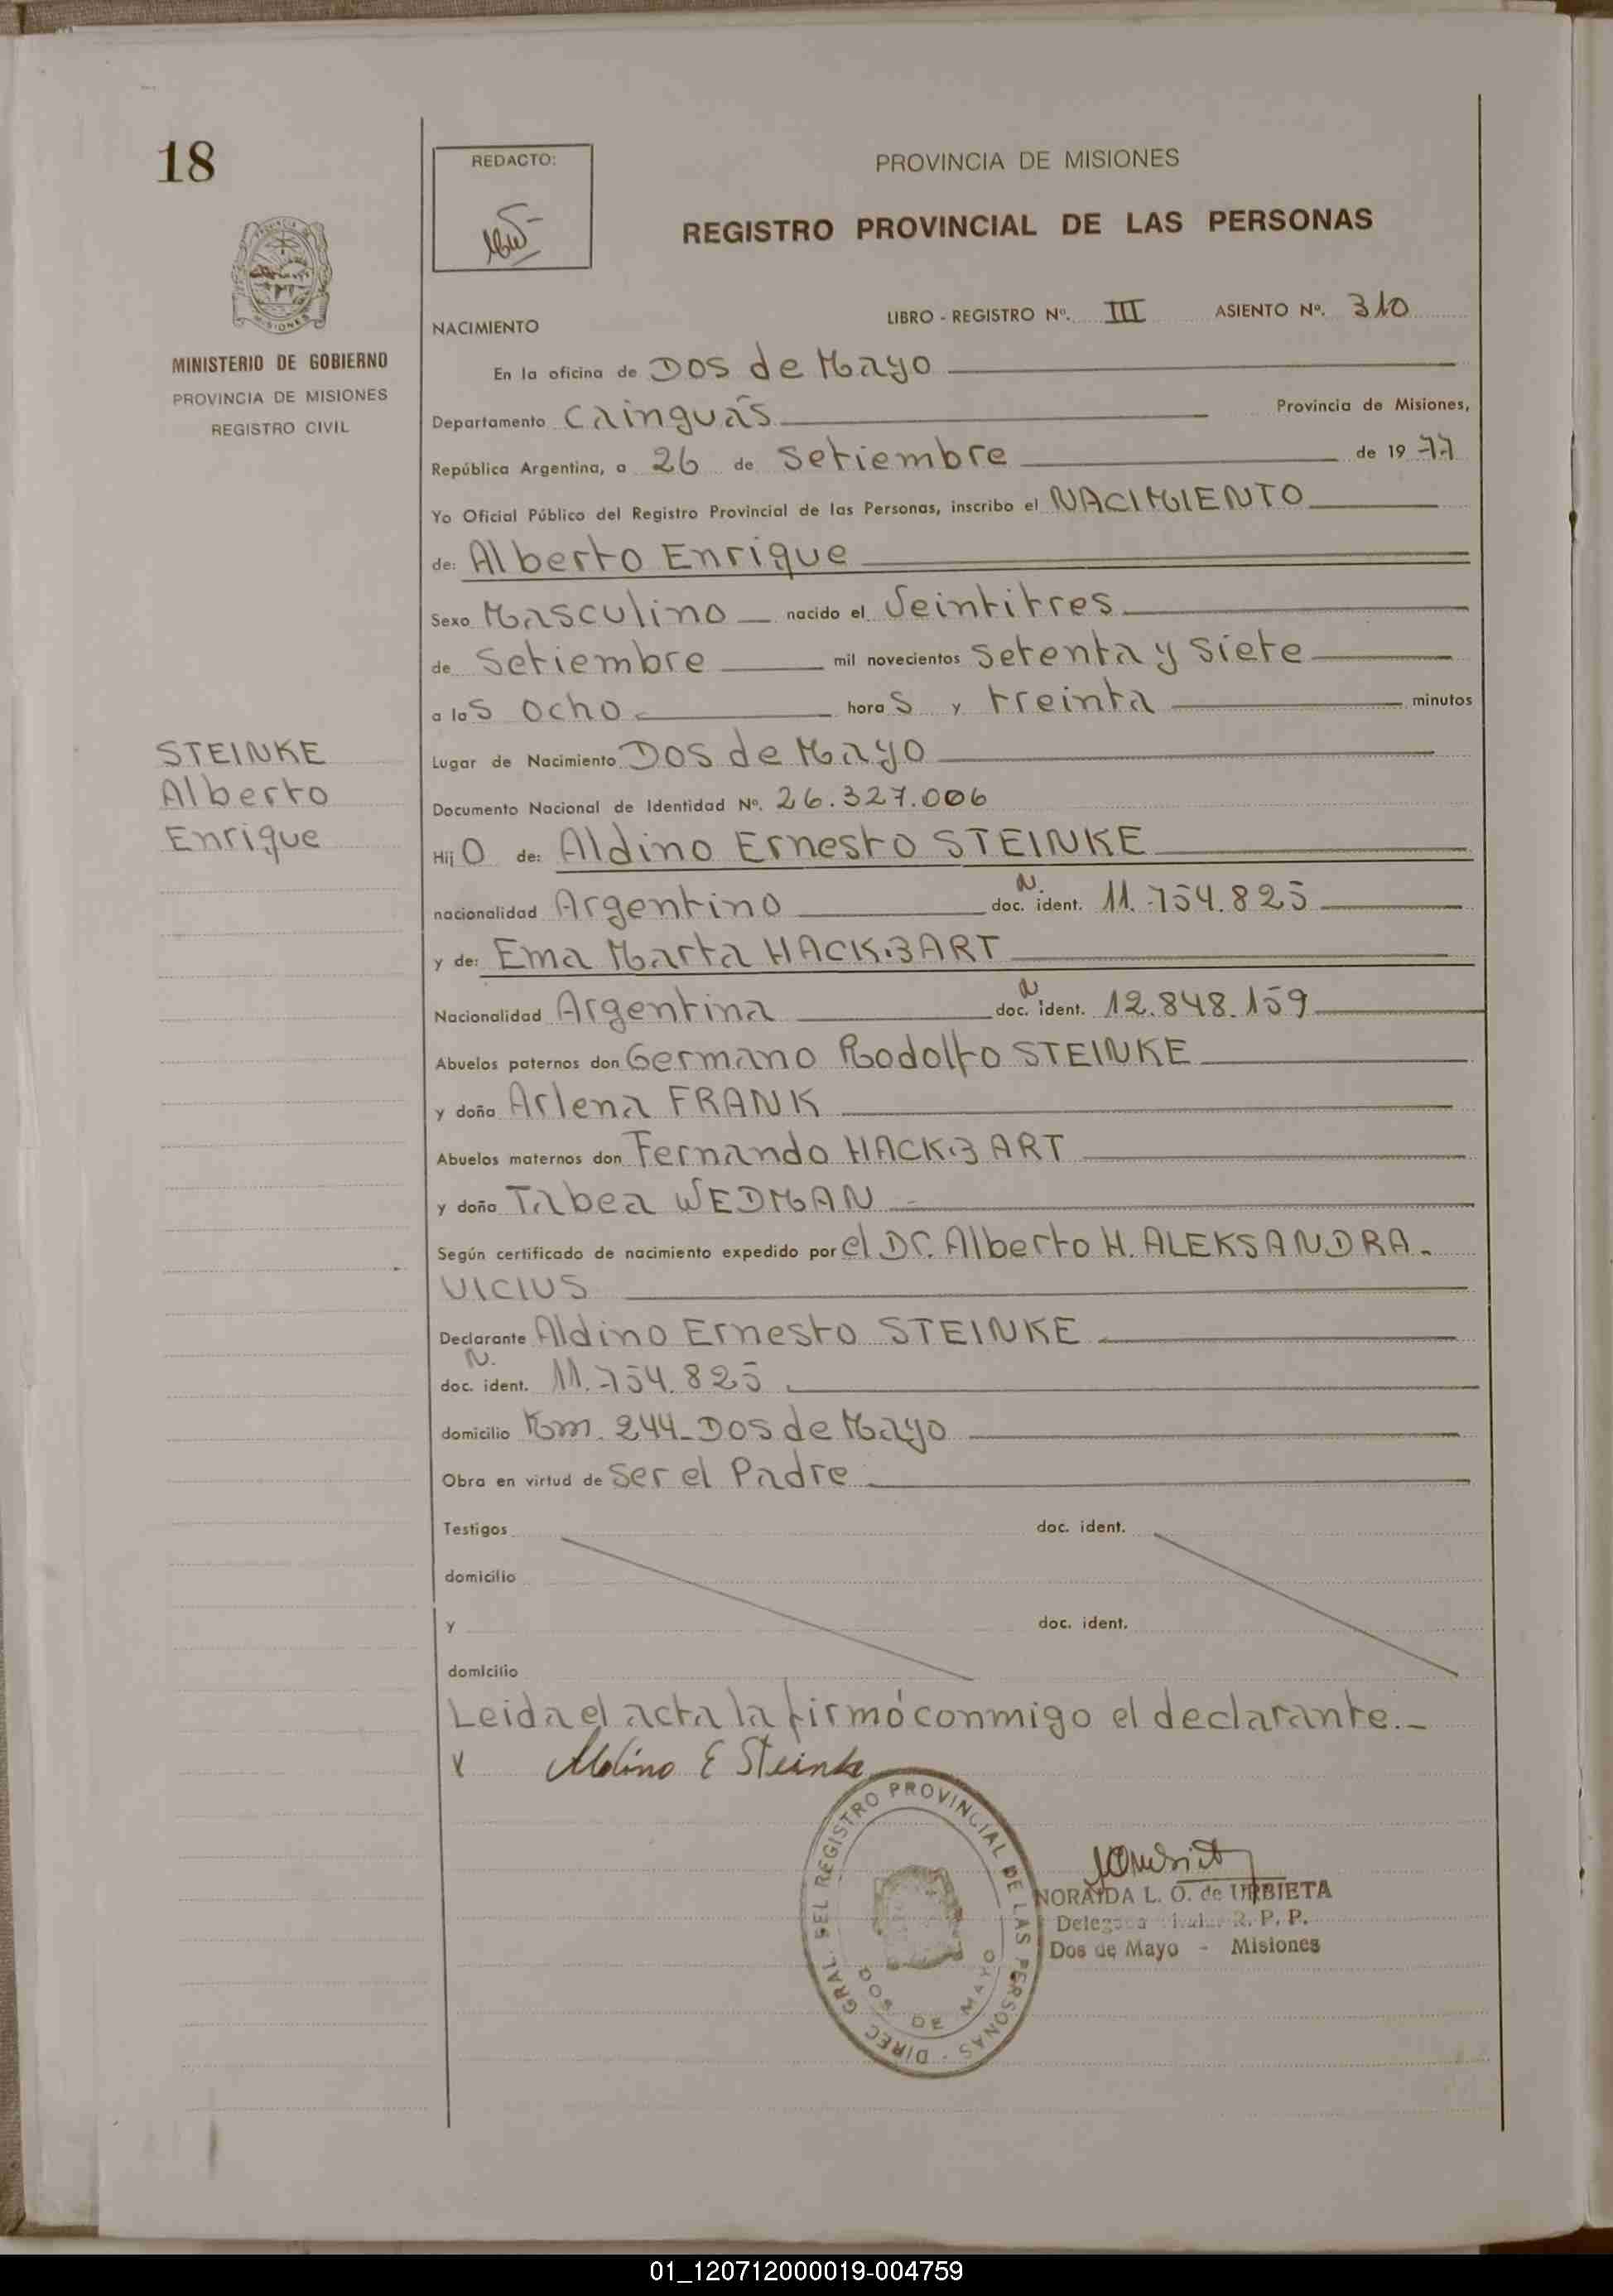 18
REDACTO:
PROVINCIA DE MISIONES
REGISTRO PROVINCIAL DE LAS PERSONAS
MINISTERIO DE GOBIERNO
PROVINCIA DE MISIONES
REGISTRO CIVIL
LIBRO - REGISTRO Nº. III ASIENTO Nº. 310
NACIMIENTO
En la oficina de Dos de Mayo
Departamento Cainguás Provincia de Misiones,
República Argentina, a 26 de Setiembre de 1977
Yo Oficial Público del Registro Provincial de las Personas, inscribo el NACIMIENTO
de: Alberto Enrique
Sexo Masculino nacido el Veintitres
de Setiembre mil novecientos setenta y siete
a las ocho horas y treinta minutos
STEINKE
Alberto
Enrique
Lugar de Nacimiento Dos de Mayo
Documento Nacional de Identidad Nº. 26.327.006
Hijo de: Aldino Ernesto STEINKE
nacionalidad Argentino doc. N. ident. 11.754.825
y de: Ema Marta HACKBART
Nacionalidad Argentina doc. N ident. 12.848.159
Abuelos paternos don Germano Rodolfo STEINKE
y doña Arlena FRANK
Abuelos maternos don Fernando HACKBART
y doña Tabea WEDMAN
Según certificado de nacimiento expedido por el Dr. Alberto H. ALEKSANDRA-
VICIUS
Declarante Aldino Ernesto STEINKE
doc. N. ident. 11.754.825
domicilio Km. 244-Dos de Mayo
Obra en virtud de ser el Padre
Testigos doc. ident.
domicilio
y doc. ident.
domicilio
Leida el acta la firmó conmigo el declarante.-
x Aldino E Steinke
DIREC. GRAL. DEL REGISTRO PROVINCIAL DE LAS PERSONAS -
DOS DE MAYO
NORAIDA L. O. de URBIETA
R. P. P.
Dos de Mayo - Misiones
01_120712000019-004759